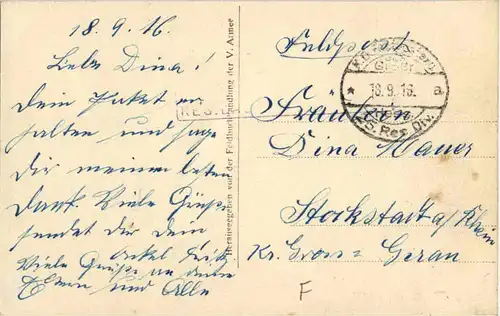 18.9.16.
Liebe Dina!
Dein Paket er
halten und sage
Dir meinen besten
Dank. Viele Grüße
sendet Dir Dein
Onkel Fritz
Viele Grüße an Deine
Eltern und Alle
Herausgegeben von der Feldbuchhandlung der V. Armee
Feldpost
18.9.16.
a
25. Res. Div.
Fräulein
Dina Mauer
Stockstadt a/Rhein
Kr. Gross-Gerau
F